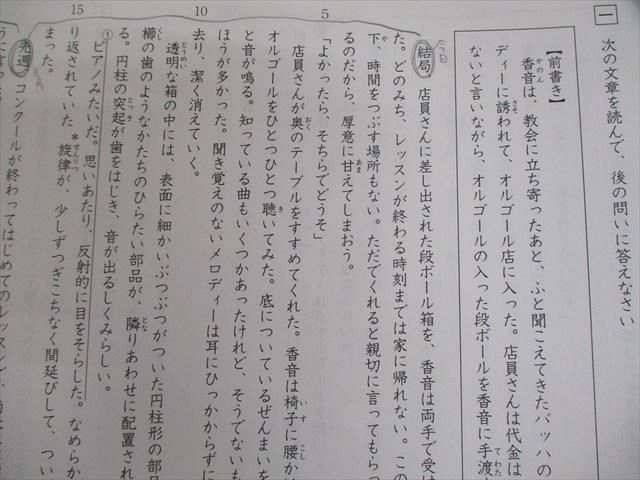 一
次の文章を読んで、後の問いに答えなさい
【前書き】
香音は、教会に立ち寄ったあと、ふと聞こえてきたバッハの
かのん
ディーに誘われて、オルゴール店に入った。店員さんは代金は
さそ
ないと言いながら、オルゴールの入った段ボールを香音に手渡
てわた
結局、店員さんに差し出された段ボール箱を、香音は両手で受け
た。どのみち、レッスンが終わる時刻までは家に帰れない。この
下、時間をつぶす場所もない。ただでくれると親切に言ってもらっ
か
るのだから、厚意に甘えてしまおう。
あま
5
「よかったら、そちらでどうぞ」
店員さんが奥のテーブルをすすめてくれた。香音は椅子に腰か
おく
いす
こし
オルゴールをひとつひとつ聴いてみた。底についているぜんまいを
き
と音が鳴る。知っている曲もいくつかあったけれど、そうでないも
ほうが多かった。聞き覚えのないメロディーは耳にひっかからずに
10
去り、潔く消えていく。
透明な箱の中には、表面に細かいぶつぶつがついた円柱形の部品
とうめい
櫛の歯のようなかたちのひらたい部品が、隣りあわせに配置され
くし
とな
る。円柱の突起が歯をはじき、音が出るしくみらしい。
とっき
①ピアノみたいだ。思いあたり、反射的に目をそらした。なめらか
15
り返されていた*旋律が、少しずつぎこちなく間延びして、つい
せんりつ
まった。
先週、コンクールが終わってはじめてのレッスンで、